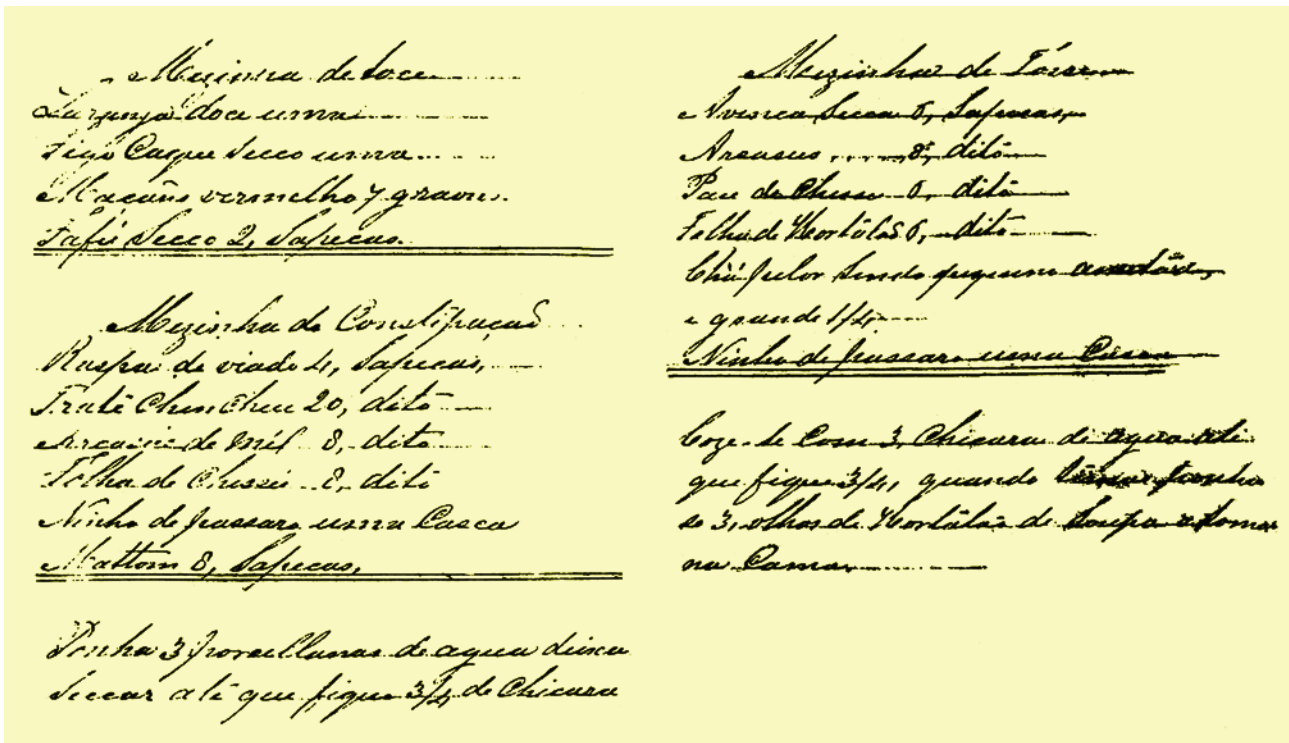 Mezinha de toce
Laranja doce uma
Figo Caque Secco uma
Macãns vermelho 7 graons.
Fafú Secco 2, Sapecas.
Mezinha de Constipaçaõ
Raspa de viado 4, Sapecas,
Fratê Chencheu 20, ditõ
de Mél 8, dito
Folha de 8, ditõ
Ninho de passaro uma Casca
Mattom 8, Sapecas,
Ponha 3 porcellanas de agua deixa
Seccar até que fique 3/4 de Chicara
Mezinhas de
Avenca Secca 5, Sapecas,
8, ditõ
Pau de 5, ditõ
Folha de Hortalaõ 5, ditõ
Chá Sendo pequeno
e grande 1/4
Ninho de passaro uma Casca
Coze-se Com 3, Chicara de agua ate
que fique 3/4, quando ponha
se 3, olhos de Hortalaõ de Soupa e tomar
na Cama,